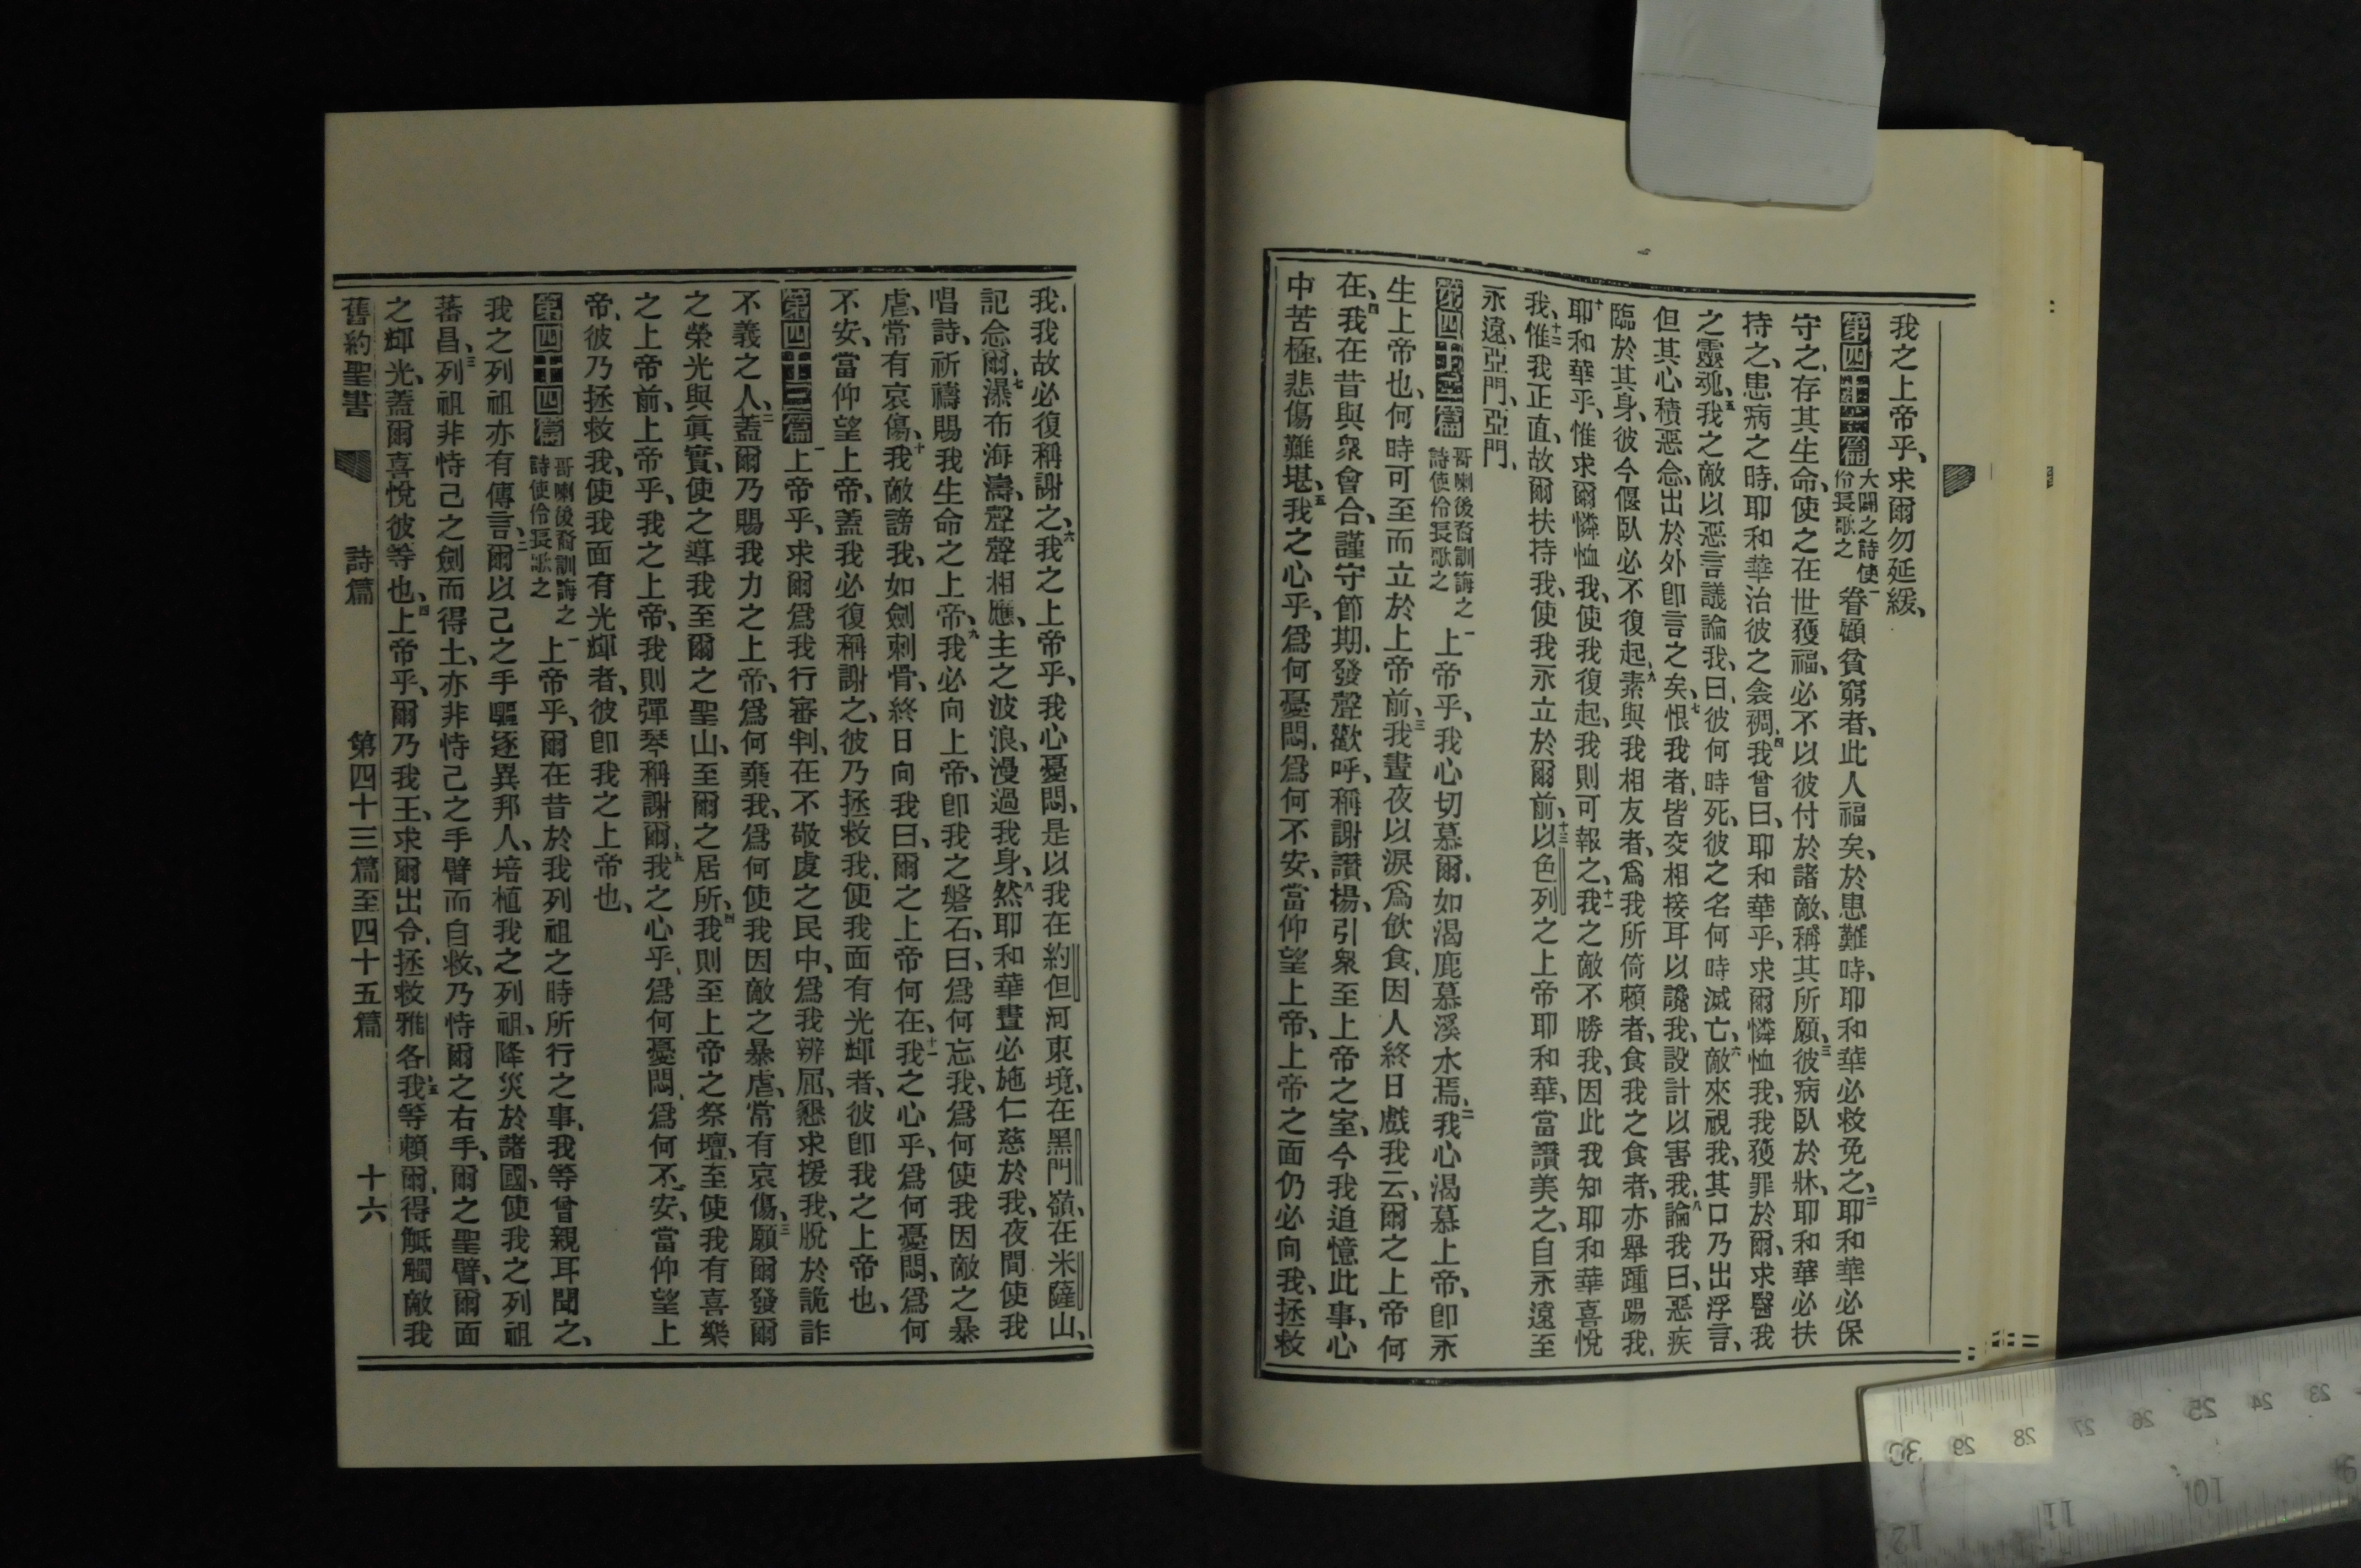 我之上帝乎、求爾勿延緩、
第四十一篇 大闢之詩使伶長歌之 一眷顧貧窮者、此人福矣、於患難時、耶和華必救免之、二耶和華必保
守之、存其生命、使之在世獲福、必不以彼付於諸敵、稱其所願、三彼病臥於牀、耶和華必扶
持之、患病之時、耶和華治彼之衾裯、四我曾曰、耶和華乎、求爾憐恤我、我獲罪於爾、求醫我
之靈魂、五我之敵以惡言議論我、曰、彼何時死、彼之名何時滅亡、六敵來視我、其口乃出浮言、
但其心積惡念、出於外卽言之矣、七恨我者、皆交相接耳以讒我、設計以害我、八論我曰、惡疾
臨於其身、彼今偃臥必不復起、九素與我相友者、爲我所倚賴者、食我之食者、亦舉踵踢我、
十耶和華乎、惟求爾憐恤我、使我復起、我則可報之、十一我之敵不勝我、因此我知耶和華喜悅
我、十二惟我正直、故爾扶持我、使我永立於爾前、十三以色列之上帝耶和華、當讚美之、自永遠至
永遠、亞門、亞門、
第四十二篇 哥喇後裔訓誨之詩使伶長歌之 一上帝乎、我心切慕爾、如渴鹿慕溪水焉、二我心渴慕上帝、卽永
生上帝也、何時可至而立於上帝前、三我晝夜以淚爲飲食、因人終日戲我云、爾之上帝何
在、四我在昔與衆會合、謹守節期、發聲歡呼、稱謝讚揚、引衆至上帝之室、今我追憶此事、心
中苦極、悲傷難堪、五我之心乎、爲何憂悶、爲何不安、當仰望上帝、上帝之面仍必向我、拯救
我、我故必復稱謝之、六我之上帝乎、我心憂悶、是以我在約但河東境、在黑門嶺、在米薩山、
記念爾、七瀑布海濤、聲聲相應、主之波浪、漫過我身、八然耶和華晝必施仁慈於我、夜間使我
唱詩、祈禱賜我生命之上帝、九我必向上帝、卽我之磐石、曰、爲何忘我、爲何使我因敵之暴
虐、常有哀傷、十我敵謗我、如劍刺骨、終日向我曰、爾之上帝何在、十一我之心乎、爲何憂悶、爲何
不安、當仰望上帝、蓋我必復稱謝之、彼乃拯救我、使我面有光輝者、彼卽我之上帝也、
第四十三篇 一上帝乎、求爾爲我行審判、在不敬虔之民中、爲我辨屈、懇求援我、脫於詭詐
不義之人、二蓋爾乃賜我力之上帝、爲何棄我、爲何使我因敵之暴虐、常有哀傷、三願爾發爾
之榮光與眞實、使之導我至爾之聖山、至爾之居所、四我則至上帝之祭壇、至使我有喜樂
之上帝前、上帝乎、我之上帝、我則彈琴稱謝爾、五我之心乎、爲何憂悶、爲何不安、當仰望上
帝、彼乃拯救我、使我面有光輝者、彼卽我之上帝也、
第四十四篇 哥喇後裔訓誨之詩使伶長歌之 一上帝乎、爾在昔於我列祖之時所行之事、我等曾親耳聞之、
我之列祖亦有傳言、二爾以己之手驅逐異邦人、培植我之列祖、降災於諸國、使我之列祖
蕃昌、三列祖非恃己之劍而得土、亦非恃己之手臂而自救、乃恃爾之右手、爾之聖臂、爾面
之輝光、蓋爾喜悅彼等也、四上帝乎、爾乃我王、求爾出令、拯救雅各、五我等賴爾、得觝觸敵我
舊約聖書 詩篇 第四十三篇至四十五篇 十六
30 29 28 27 26 25 24 23
12 11 10 9